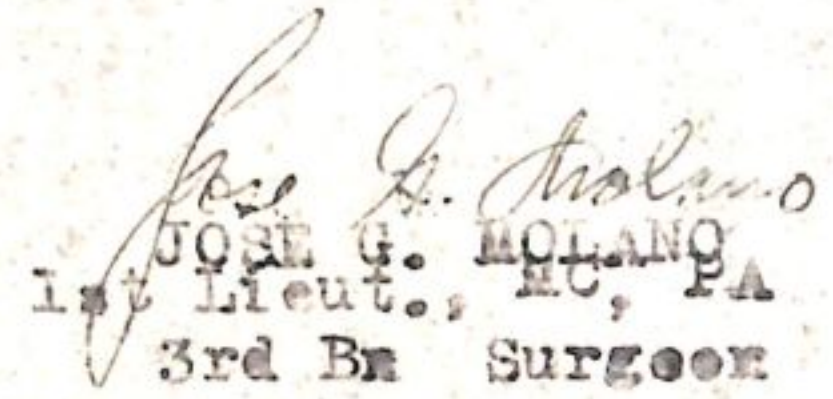 Jose G. Molano
JOSE G. MOLANO
1st Lieut., MC, PA
3rd Bn Surgeon